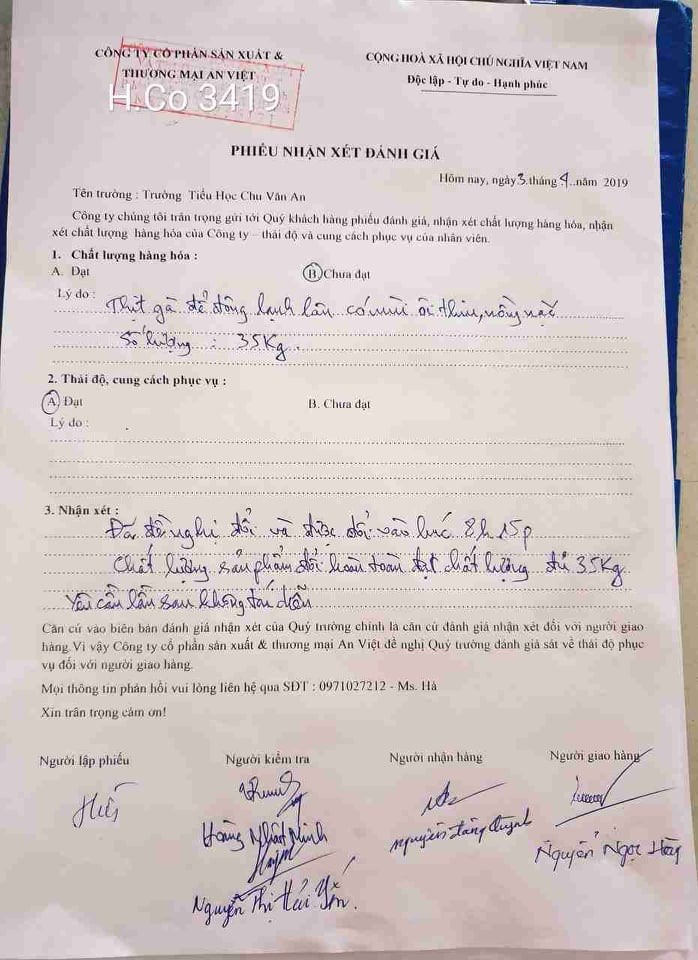 CÔNG TY CỔ PHẦN SẢN XUẤT &
THƯƠNG MẠI AN VIỆT
H.Co 3419
CỘNG HOÀ XÃ HỘI CHỦ NGHĨA VIỆT NAM
Độc lập - Tự do - Hạnh phúc
PHIẾU NHẬN XÉT ĐÁNH GIÁ
Hôm nay, ngày 3 tháng 4 năm 2019
Tên trường : Trường Tiểu Học Chu Văn An
Công ty chúng tôi trân trọng gửi tới Quý khách hàng phiếu đánh giá, nhận xét chất lượng hàng hóa, nhận
xét chất lượng hàng hóa của Công ty – thái độ và cung cách phục vụ của nhân viên.
1. Chất lượng hàng hóa :
A. Đạt B Chưa đạt
Lý do : Thịt gà để đông lạnh lâu có mùi ôi thiu, nồng nặc
Số lượng : 35Kg.
2. Thái độ, cung cách phục vụ :
A Đạt B. Chưa đạt
Lý do :
3. Nhận xét : Đã đề nghị đổi và được đổi vào lúc 8h15p
Chất lượng sản phẩm đổi hoàn toàn đạt chất lượng đủ 35Kg
Yêu cầu lần sau không tái diễn
Căn cứ vào biên bản đánh giá nhận xét của Quý trường chính là căn cứ đánh giá nhận xét đối với người giao
hàng. Vì vậy Công ty cổ phần sản xuất & thương mại An Việt đề nghị Quý trường đánh giá sát về thái độ phục
vụ đối với người giao hàng.
Mọi thông tin phản hồi vui lòng liên hệ qua SĐT : 0971027212 - Ms. Hà
Xin trân trọng cảm ơn!
Người lập phiếu Người kiểm tra Người nhận hàng Người giao hàng
Hoàng Nhật Minh
Nguyễn Đăng Quỳnh
Nguyễn Ngọc
Nguyễn Thị Hải Yến.